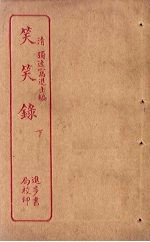 清 獨逸窩退士編
笑笑錄 下
進步書
局校印